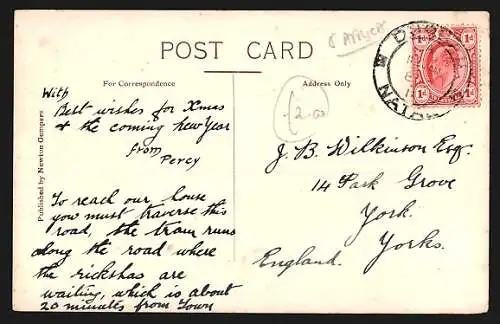 S Africa
POST CARD
For Correspondence
Address Only
With
Best wishes for Xmas
& the coming New Year
from
Percy
To reach our house
you must traverse this
road, the tram runs
along the road where
the rickshas are
waiting, which is about
20 minutes from Town
J. B. Wilkinson Esq.
14 Park Grove
York.
Yorks.
England.
Published by Newton Gompers
NATAL
1d
1d